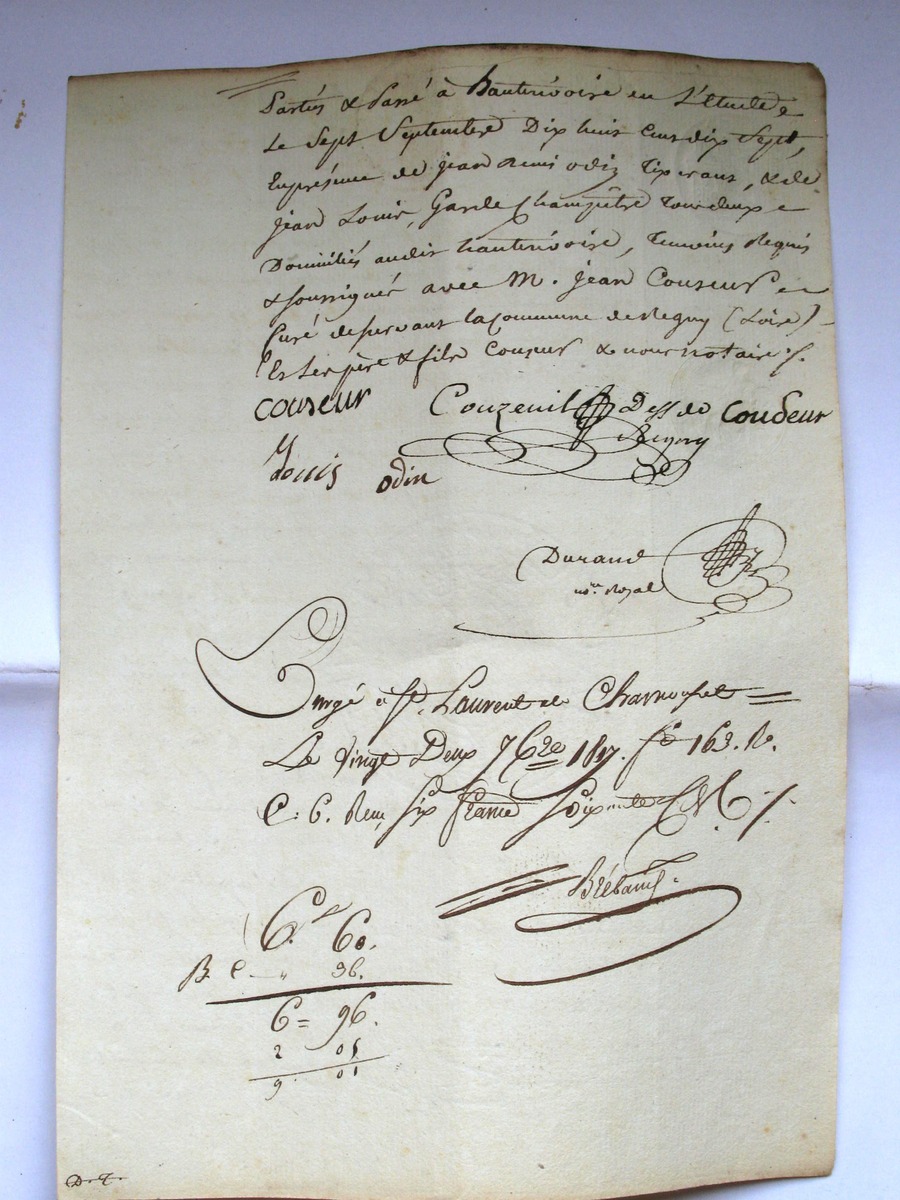 Parties & Passé à hauterivoire en L'Etude
Le Sept Septembre Dix huit Cens dix Sept,
En présence de jean Remi odin Tisserant, & de
jean Louis, Garde Champêtre Tous deux
Domiciliés audit hauterivoire, Temoins Requis
& soussignés avec M. jean Couseur
Curé desservant la Commune de Regny (Loire)
Et Les père & fils Couseur & nous notaire /.
couseur Couzeuil Dess de coudeur
Regny
Louis odin
Durand
no.re Royal
Enregé à St. Laurent de Chamousset =
Le vingt Deux 7bre 1817. fo 163. Ro.
C. 6. Reçu six francs soixante C
Brébant
6. 60.
96.
6 = 96.
2 05
9. 01
D. T.